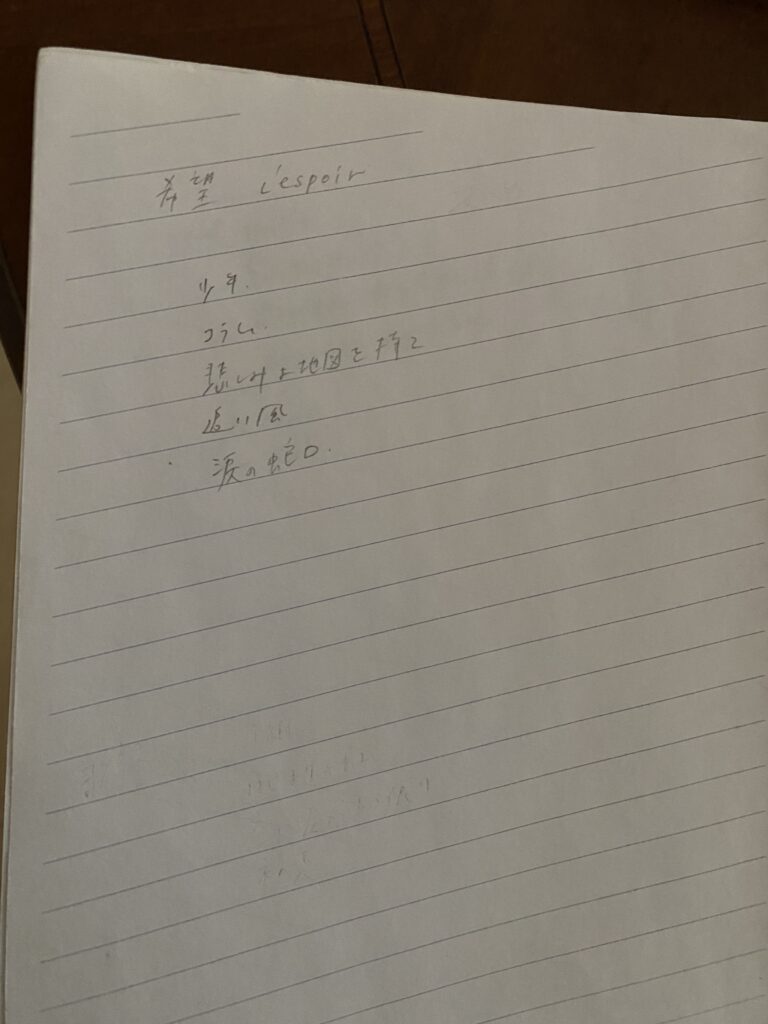 希望 L'espoir
少年.
コラム.
悲しみよ地図を持て
追い風
涙の蛇口.